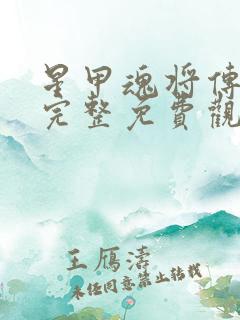 星甲魂将傳
完整免費觀
王鴈濤
未经同意禁止转载